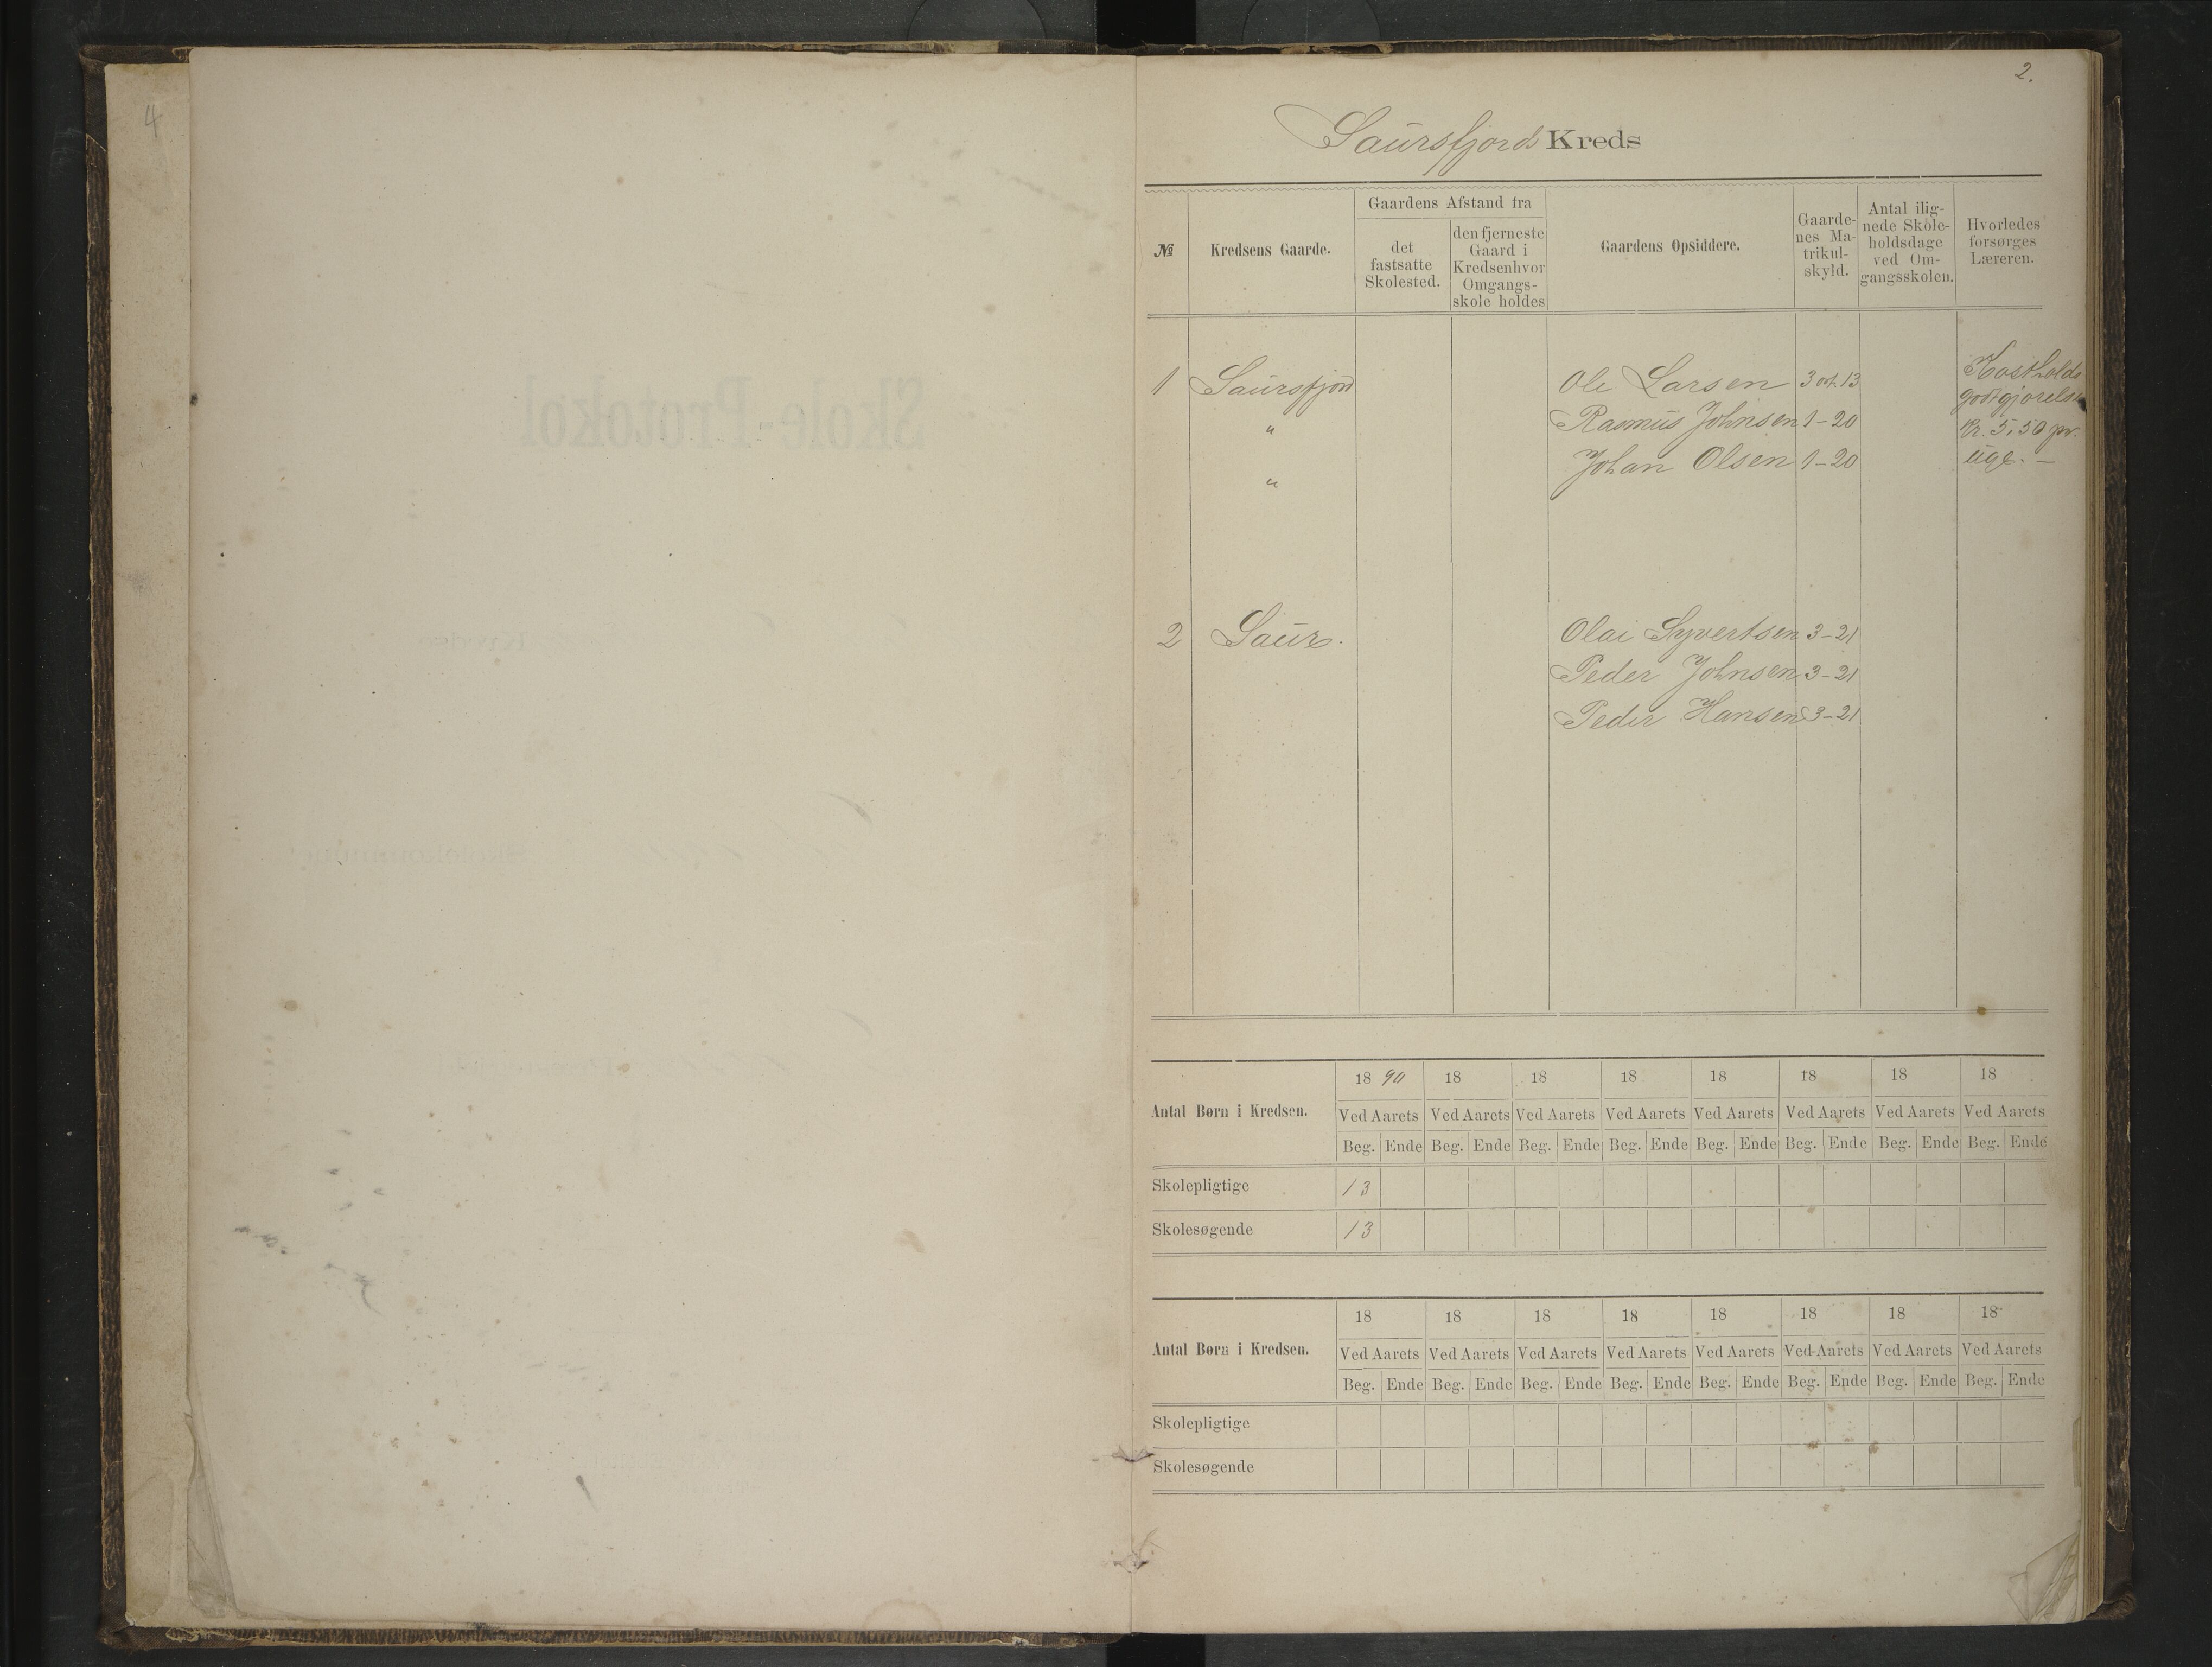 4
2.
Saursfjords Kreds
№
Kredsens Gaarde.
Gaardens Afstand fra
det fastsatte Skolested.
den fjerneste Gaard i Kredsen hvor Omgangsskole holdes
Gaardens Opsiddere.
Gaardenes Matrikulskyld.
Antal ilignede Skoleholdsdage ved Omgangsskolen.
Hvorledes forsørges Læreren.
1 Saursfjord Ole Larsen 3 ort. 13 Kostholds
godtgjørelse
" Rasmus Johnsen 1-20 Kr. 5,50 pr.
" Johan Olsen 1-20 uge. —
2 Saur. Olai Syvertsen 3-21
Peder Johnsen 3-21
Peder Hansen 3-21
Antal Børn i Kredsen.
18 90 18 18 18 18 18 18 18
Ved Aarets Ved Aarets Ved Aarets Ved Aarets Ved Aarets Ved Aarets Ved Aarets Ved Aarets
Beg. Ende Beg. Ende Beg. Ende Beg. Ende Beg. Ende Beg. Ende Beg. Ende Beg. Ende
Skolepligtige 13
Skolesøgende 13
Antal Børn i Kredsen.
18 18 18 18 18 18 18 18
Ved Aarets Ved Aarets Ved Aarets Ved Aarets Ved Aarets Ved Aarets Ved Aarets Ved Aarets
Beg. Ende Beg. Ende Beg. Ende Beg. Ende Beg. Ende Beg. Ende Beg. Ende Beg. Ende
Skolepligtige
Skolesøgende